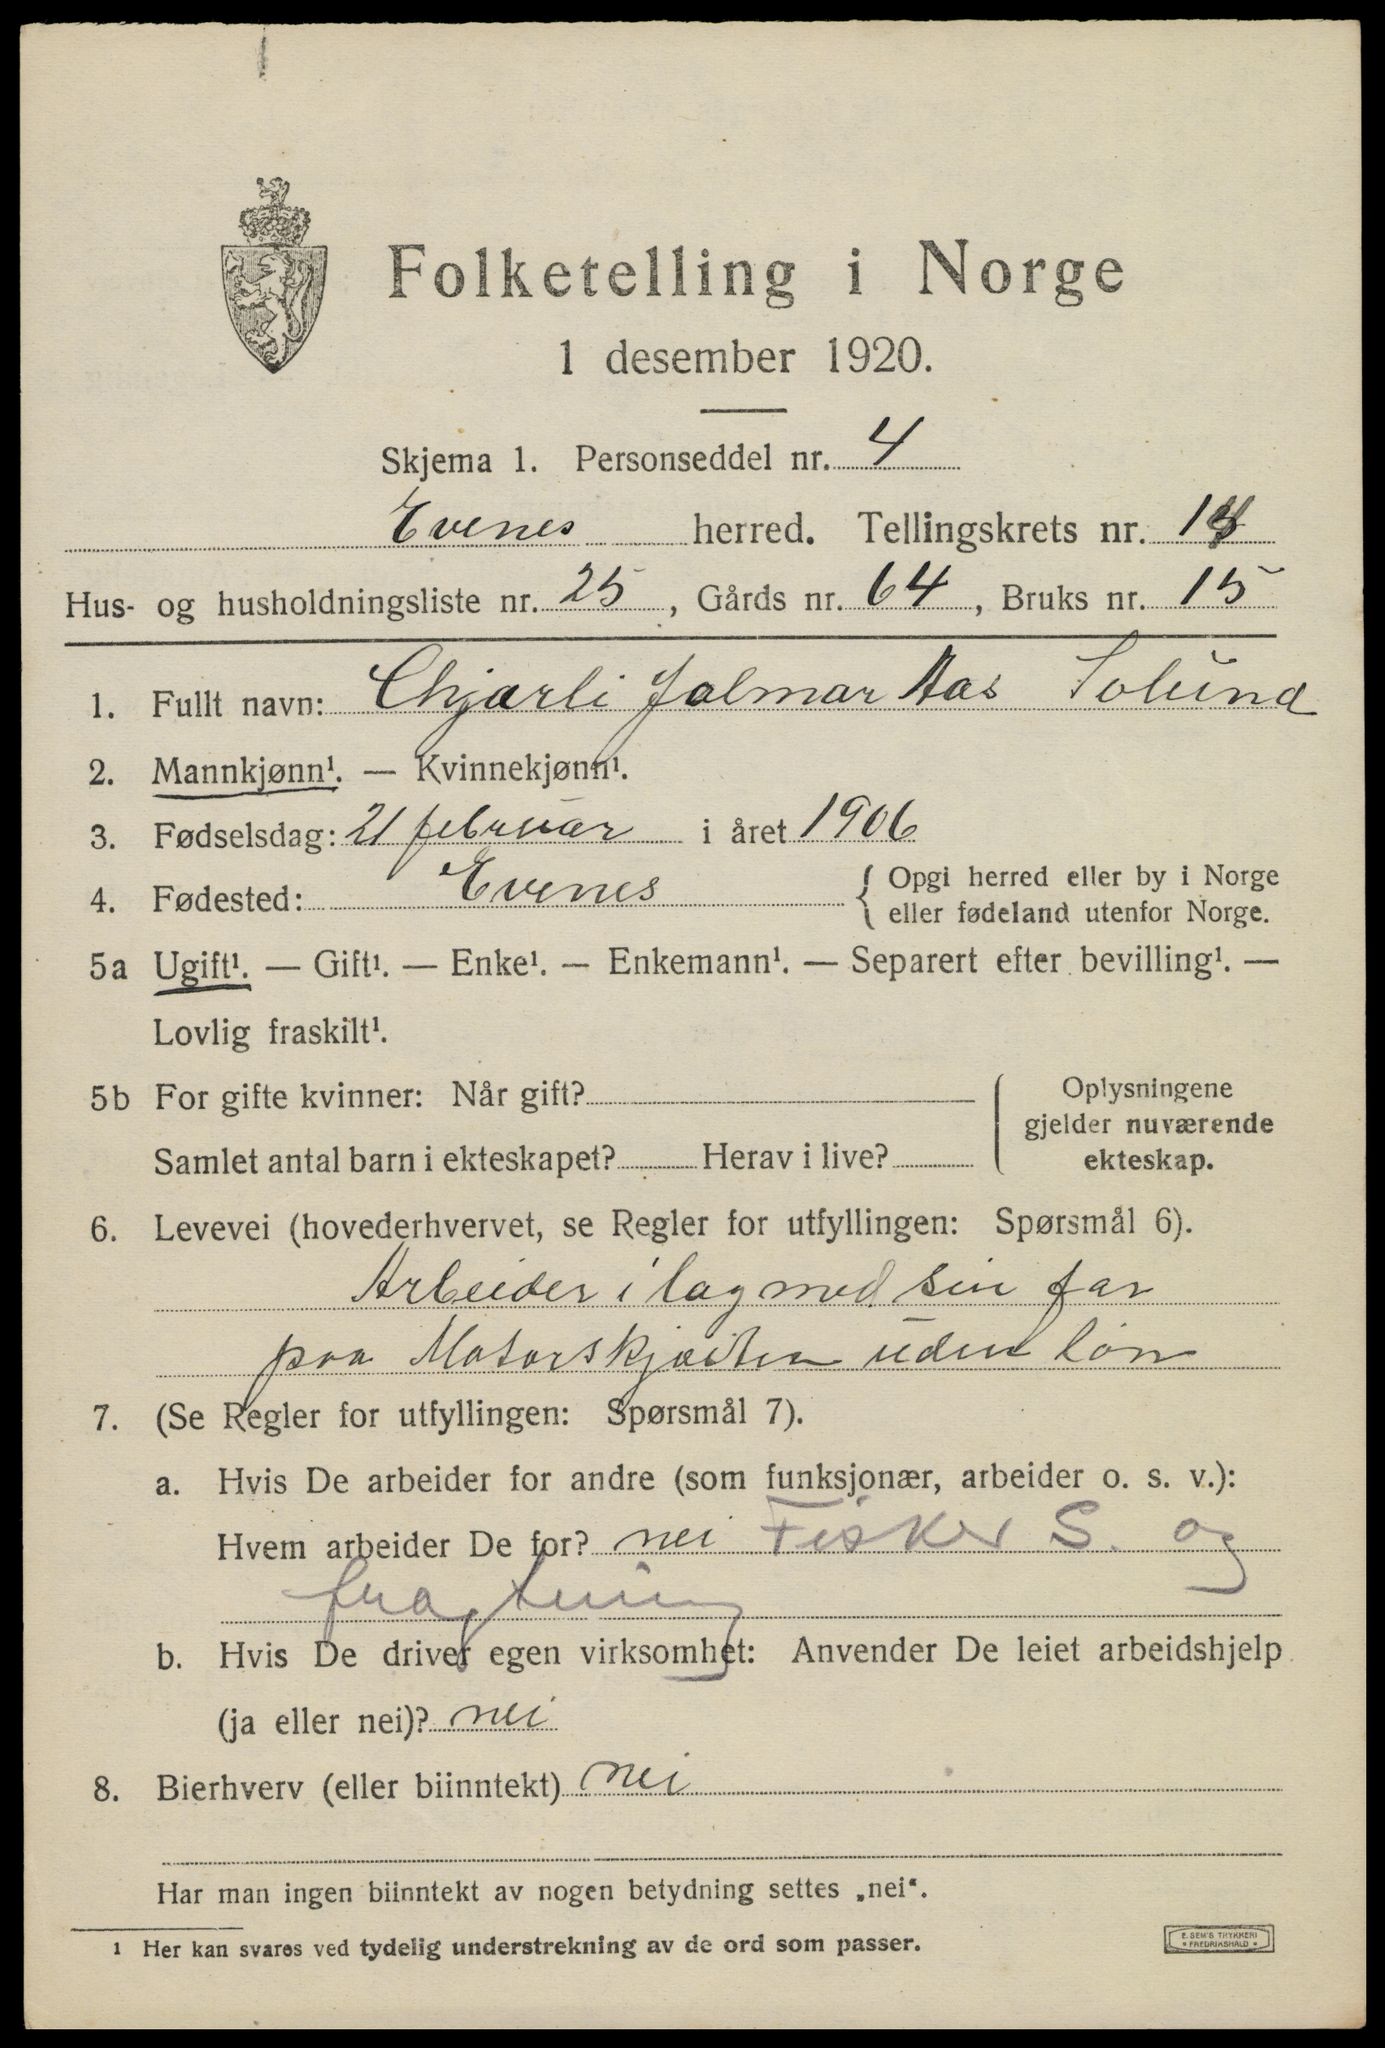 Folketelling i Norge
1 desember 1920.
Skjema 1. Personseddel nr. 4
Evenes herred. Tellingskrets nr. 1
Hus- og husholdningsliste nr. 25, Gårds nr. 64, Bruks nr. 15
1. Fullt navn: Chjarli Jalmar Aas Solund
2. Mannkjønn¹. — Kvinnekjønn¹.
3. Fødselsdag: 21 februar i året 1906
4. Fødested: Evenes { Opgi herred eller by i Norge
eller fødeland utenfor Norge.
5a Ugift¹. — Gift¹. — Enke¹. — Enkemann¹. — Separert efter bevilling¹. —
Lovlig fraskilt¹.
5b For gifte kvinner: Når gift?
Samlet antal barn i ekteskapet? Herav i live?
Oplysningene
gjelder nuværende
ekteskap.
6. Levevei (hovederhvervet, se Regler for utfyllingen: Spørsmål 6).
Arbeider i lag med sin far
paa Motorskjøiten uden løn
7. (Se Regler for utfyllingen: Spørsmål 7).
a. Hvis De arbeider for andre (som funksjonær, arbeider o. s. v.):
Hvem arbeider De for? nei Fisker S. og
fragtning
b. Hvis De driver egen virksomhet: Anvender De leiet arbeidshjelp
(ja eller nei)? nei
8. Bierhverv (eller biinntekt) nei
Har man ingen biinntekt av nogen betydning settes „nei“.
1 Her kan svares ved tydelig understrekning av de ord som passer.
E. SEM'S TRYKKERI
• FREDRIKSHALD •